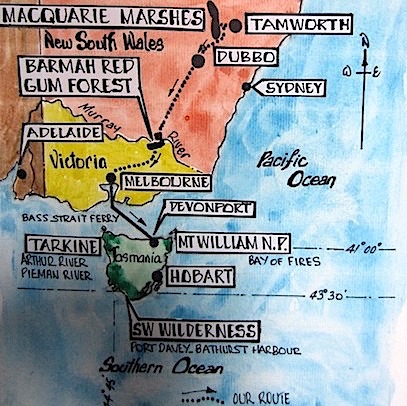 MACQUARIE MARSHES
TAMWORTH
New South Wales
DUBBO
BARMAH RED
GUM FOREST
SYDNEY
Murray
River
ADELAIDE
Victoria
Pacific
Ocean
E
MELBOURNE
DEVONPORT
BASS STRAIT FERRY
TARKINE
ARTHUR RIVER
PIEMAN RIVER
Tasmania
MT WILLIAM N.P.
BAY OF FIRES
41°00'
HOBART
43°30'
SW WILDERNESS
PORT DAVEY-BATHURST HARBOUR
Southern Ocean
OUR ROUTE